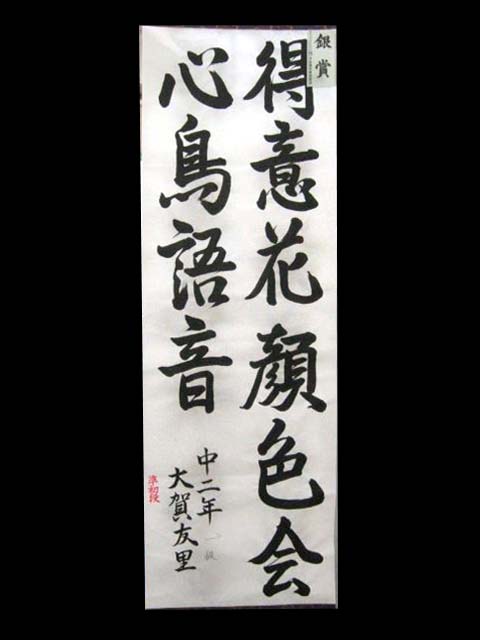 銀賞
得意花顔色会
心鳥語音
中二年 一級
大賀友里
準初段